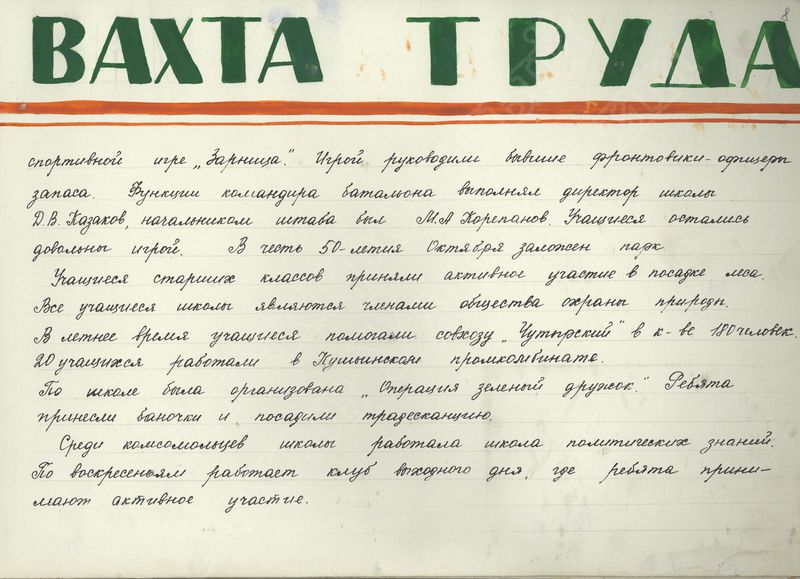 8
ВАХТА ТРУДА
спортивной игре „Зарница". Игрой руководили бывшие фронтовики-офицеры
запаса. Функции командира батальона выполнял директор школы
Д.В. Казаков, начальником штаба был М.А Корепанов. Учащиеся остались
довольны игрой. В честь 50-летия Октября заложен парк
Учащиеся старших классов приняли активное участие в посадке леса.
Все учащиеся школы являются членами общества охраны природы.
В летнее время учащиеся помогали совхозу „Чутырский" в к-ве 180 человек.
20 учащихся работали в Кушьинском промкомбинате.
По школе была организована „Операция зеленый дружок". Ребята
принесли баночки и посадили традесканцию.
Среди комсомольцев школы работала школа политических знаний.
По воскресеньям работает клуб выходного дня, где ребята прини-
мают активное участие.